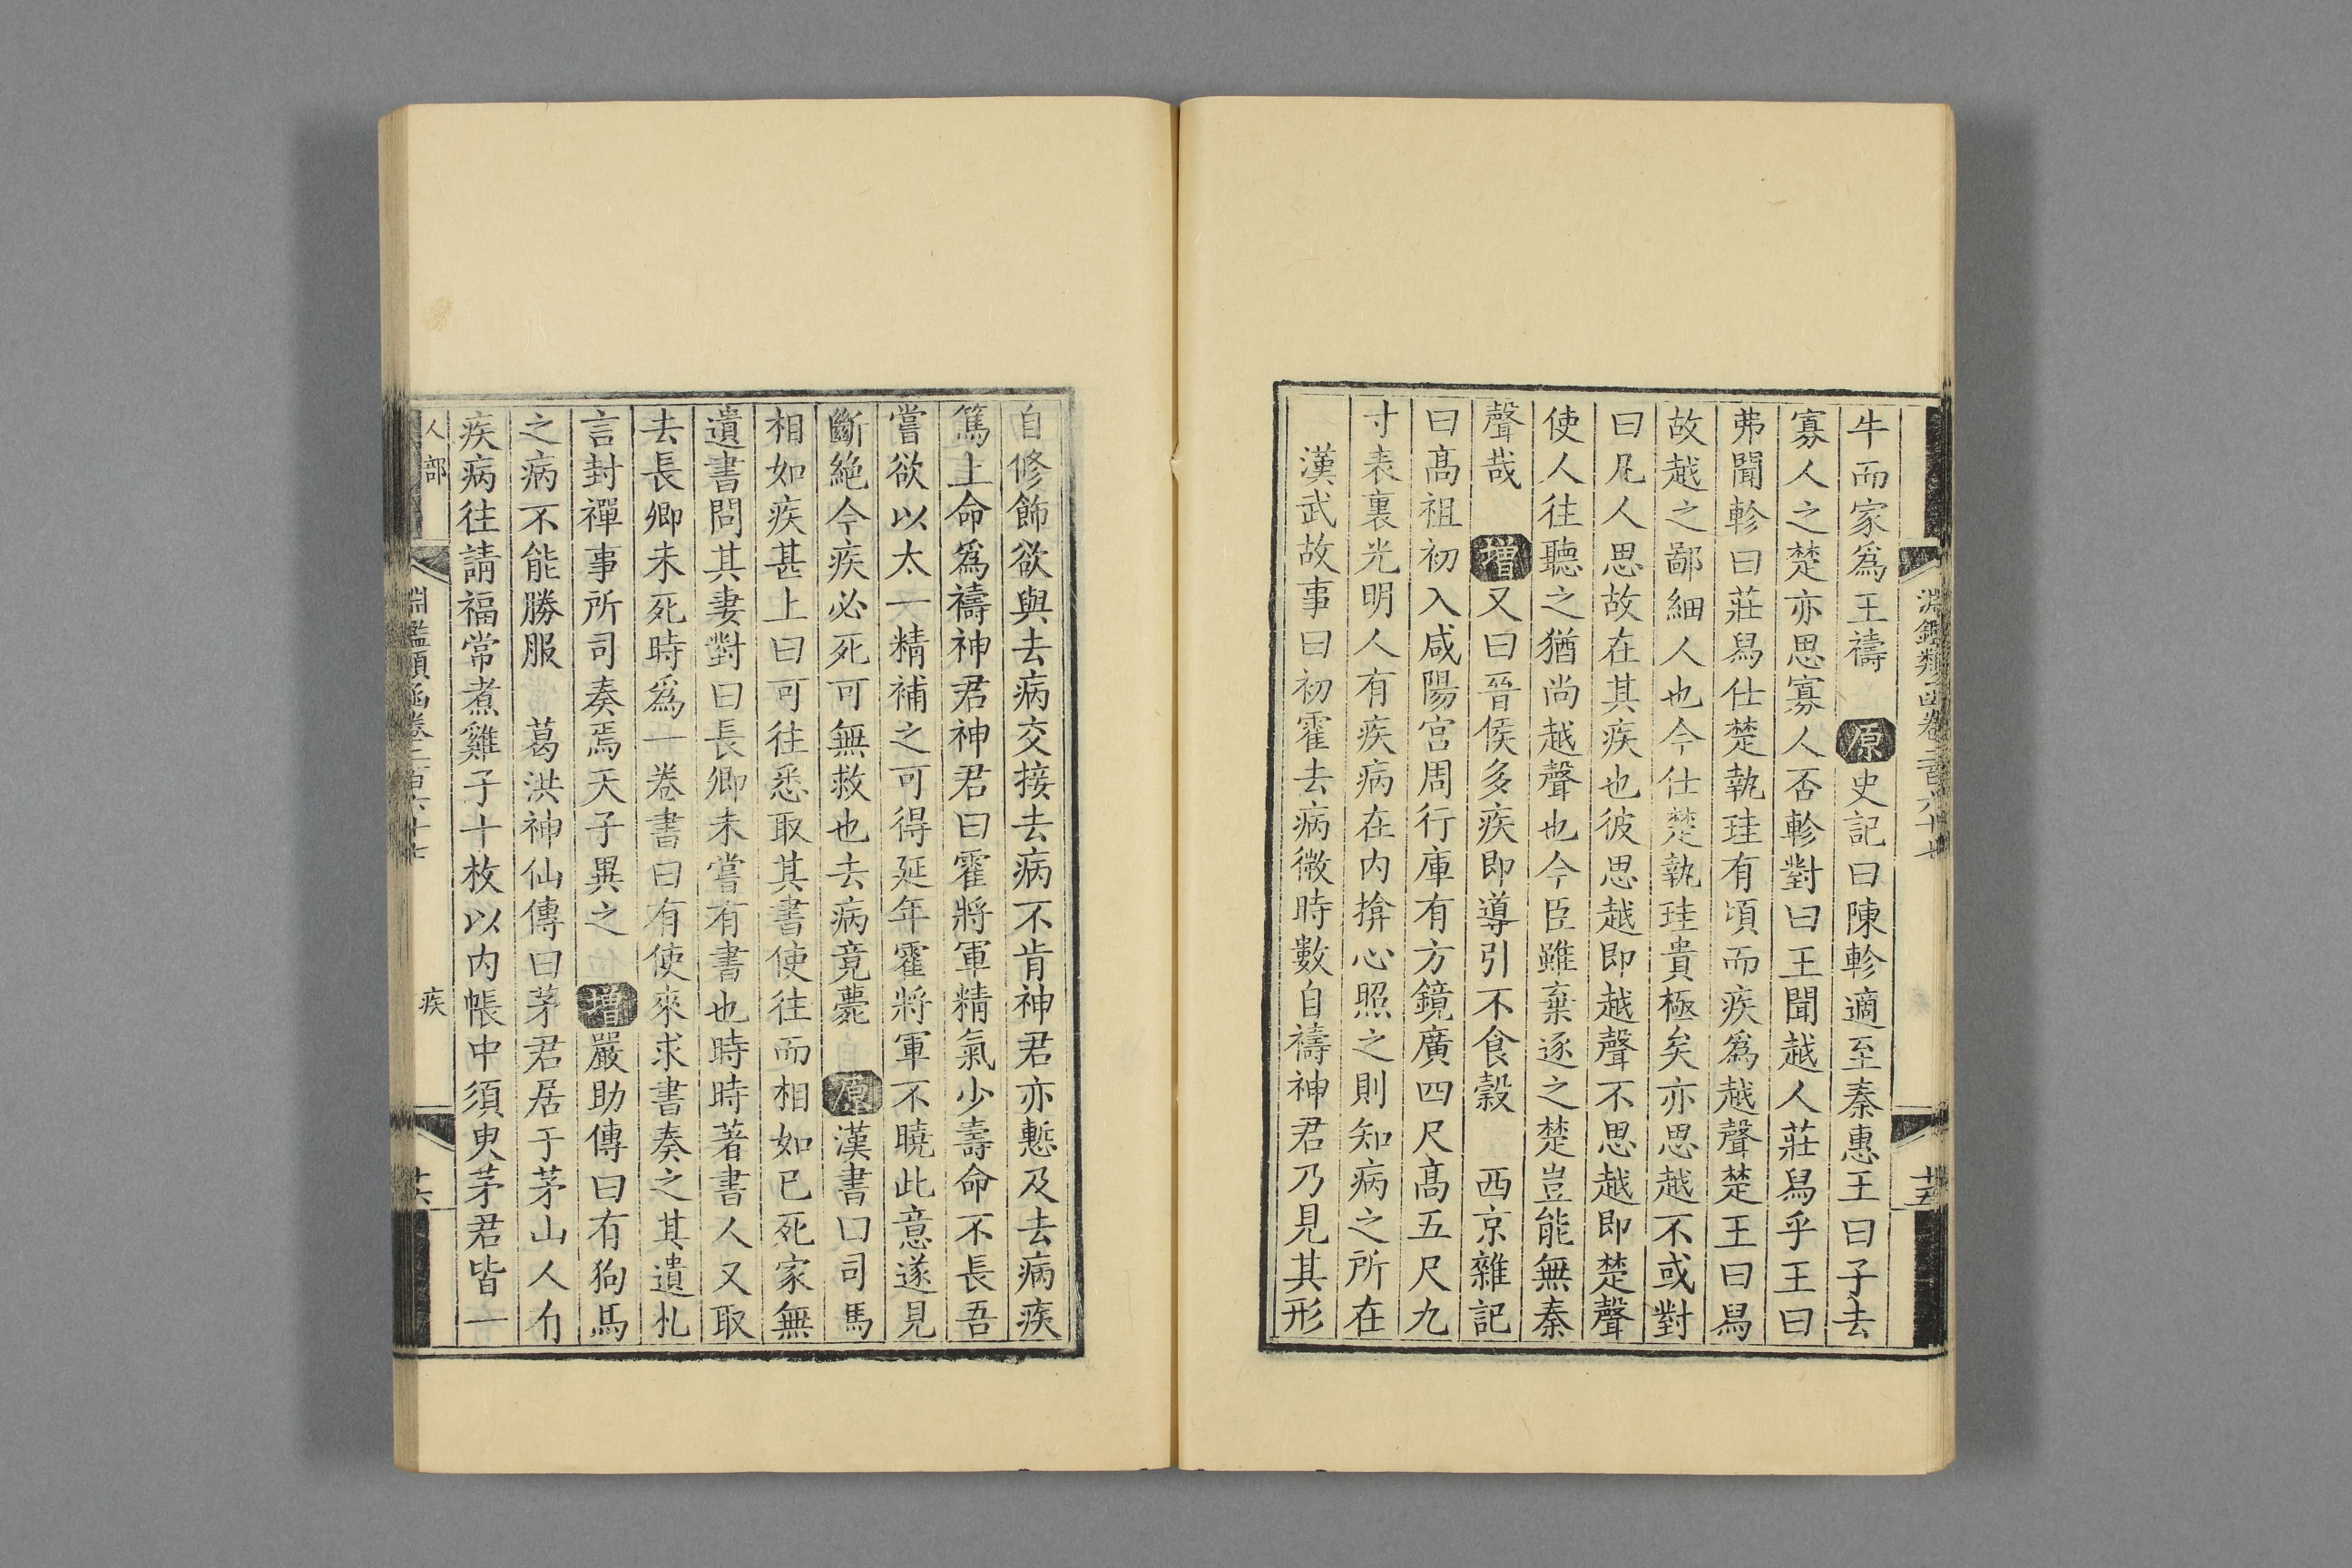 牛而家爲王禱　原史記曰陳軫適至秦惠王曰子去
寡人之楚亦思寡人否軫對曰王聞越人莊舄乎王曰
弗聞軫曰莊舄仕楚執珪有頃而疾爲越聲楚王曰舄
故越之鄙細人也今仕楚執珪貴極矣亦思越不或對
曰凡人思故在其疾也彼思越即越聲不思越即楚聲
使人往聽之猶尚越聲也今臣雖棄逐之楚豈能無秦
聲哉　增又曰晉侯多疾即導引不食穀　西京雜記
曰高祖初入咸陽宮周行庫有方鏡廣四尺高五尺九
寸表裏光明人有疾病在内揜心照之則知病之所在
漢武故事曰初霍去病微時數自禱神君乃見其形
淵鑑類函卷二百六十七
十五
自修飾欲與去病交接去病不肯神君亦慙及去病疾
篤上命爲禱神君神君曰霍將軍精氣少壽命不長吾
嘗欲以太一精補之可得延年霍將軍不曉此意遂見
斷絶今疾必死可無救也去病竟薨　原漢書曰司馬
相如疾甚上曰可往悉取其書使往而相如已死家無
遺書問其妻對曰長卿未嘗有書也時時著書人又取
去長卿未死時爲一卷書曰有使來求書奏之其遺札
言封禪事所司奏焉天子異之　增嚴助傳曰有狗馬
之病不能勝服　葛洪神仙傳曰茅君居于茅山人有
疾病往請福常煮雞子十枚以内帳中須臾茅君皆一
人部
淵鑑類函卷二百六十七
疾
十六